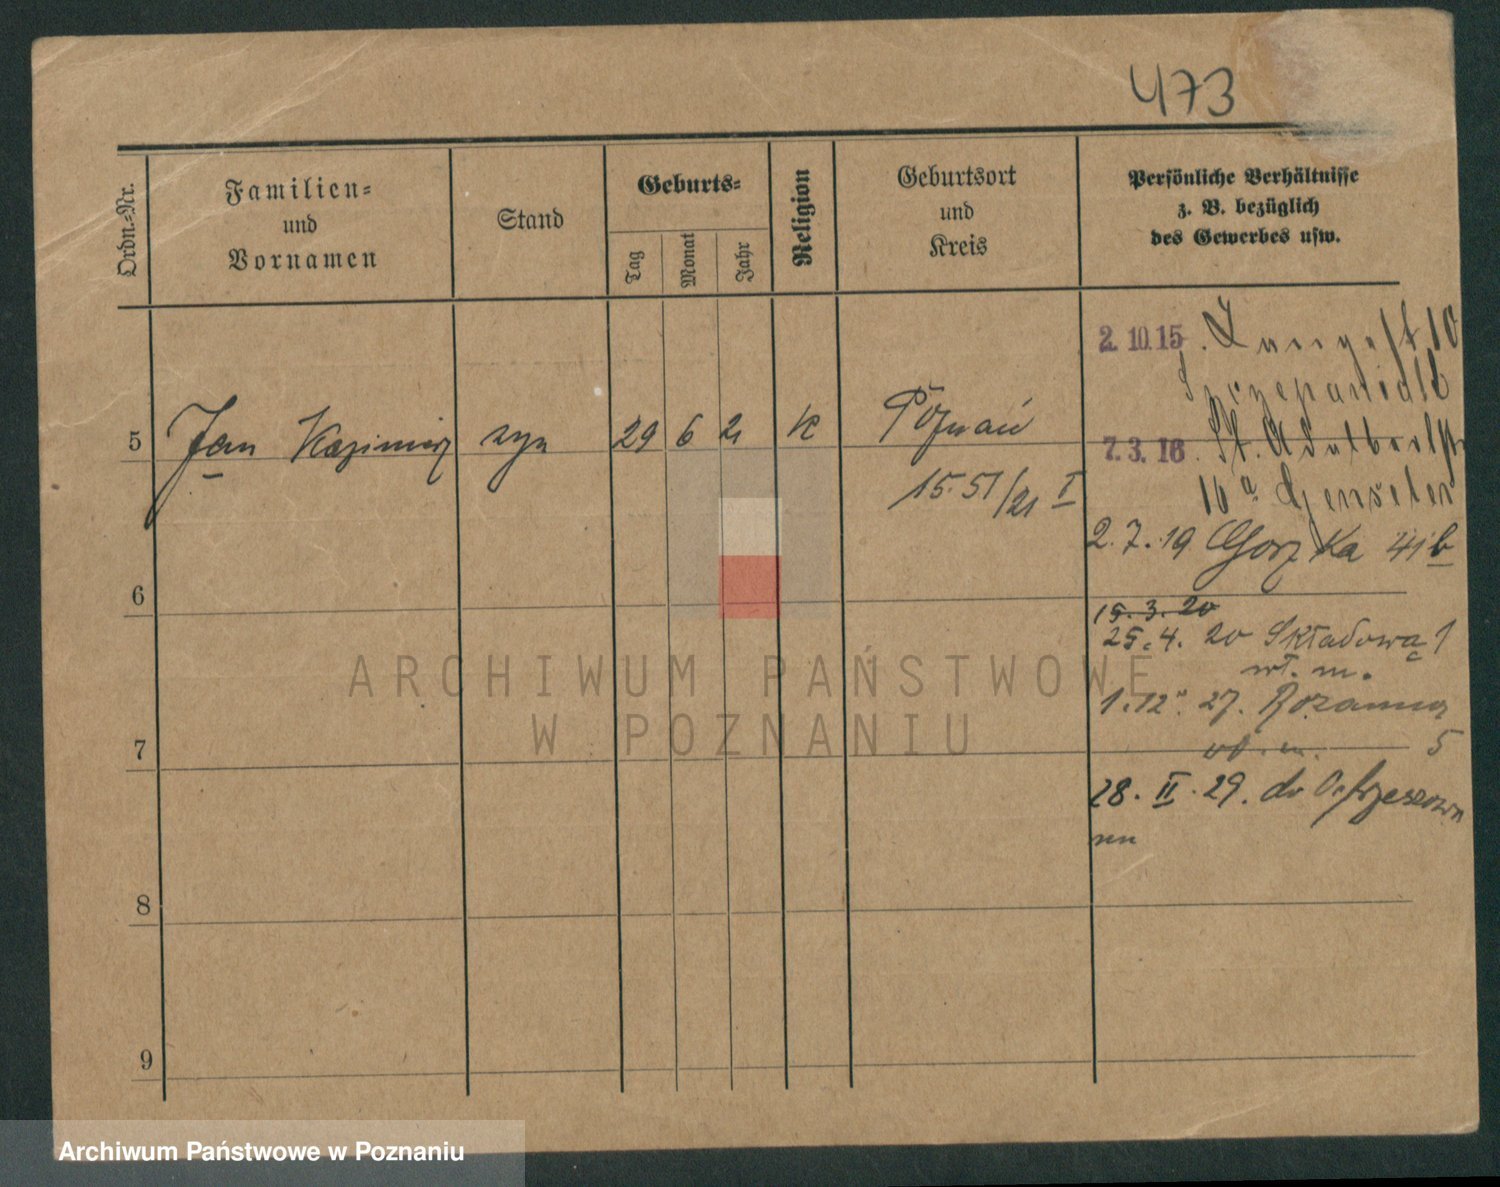 473
Ordn.=Nr.
Familien=
und
Vornamen
Stand
Geburts=
Tag
Monat
Jahr
Religion
Geburtsort
und
Kreis
Persönliche Verhältnisse
z. B. bezüglich
des Gewerbes usw.
2.10.15. Langest. 10
Szczepaniak
5 Jan Kazimierz syn 29 6 21 K Poznań
15.51/21 I
7.3.16. St. Adalbertstr
16a Genseler
2.7.19 Górka 41b
6
15.3.20
25.4.20 Składowa 1
wł. m.
1.12. 27. Różanna
7
wł. m. 5
28. II. 29. do Ostrzeszowa
8
9
ARCHIWUM PAŃSTWOWE
W POZNANIU
Archiwum Państwowe w Poznaniu